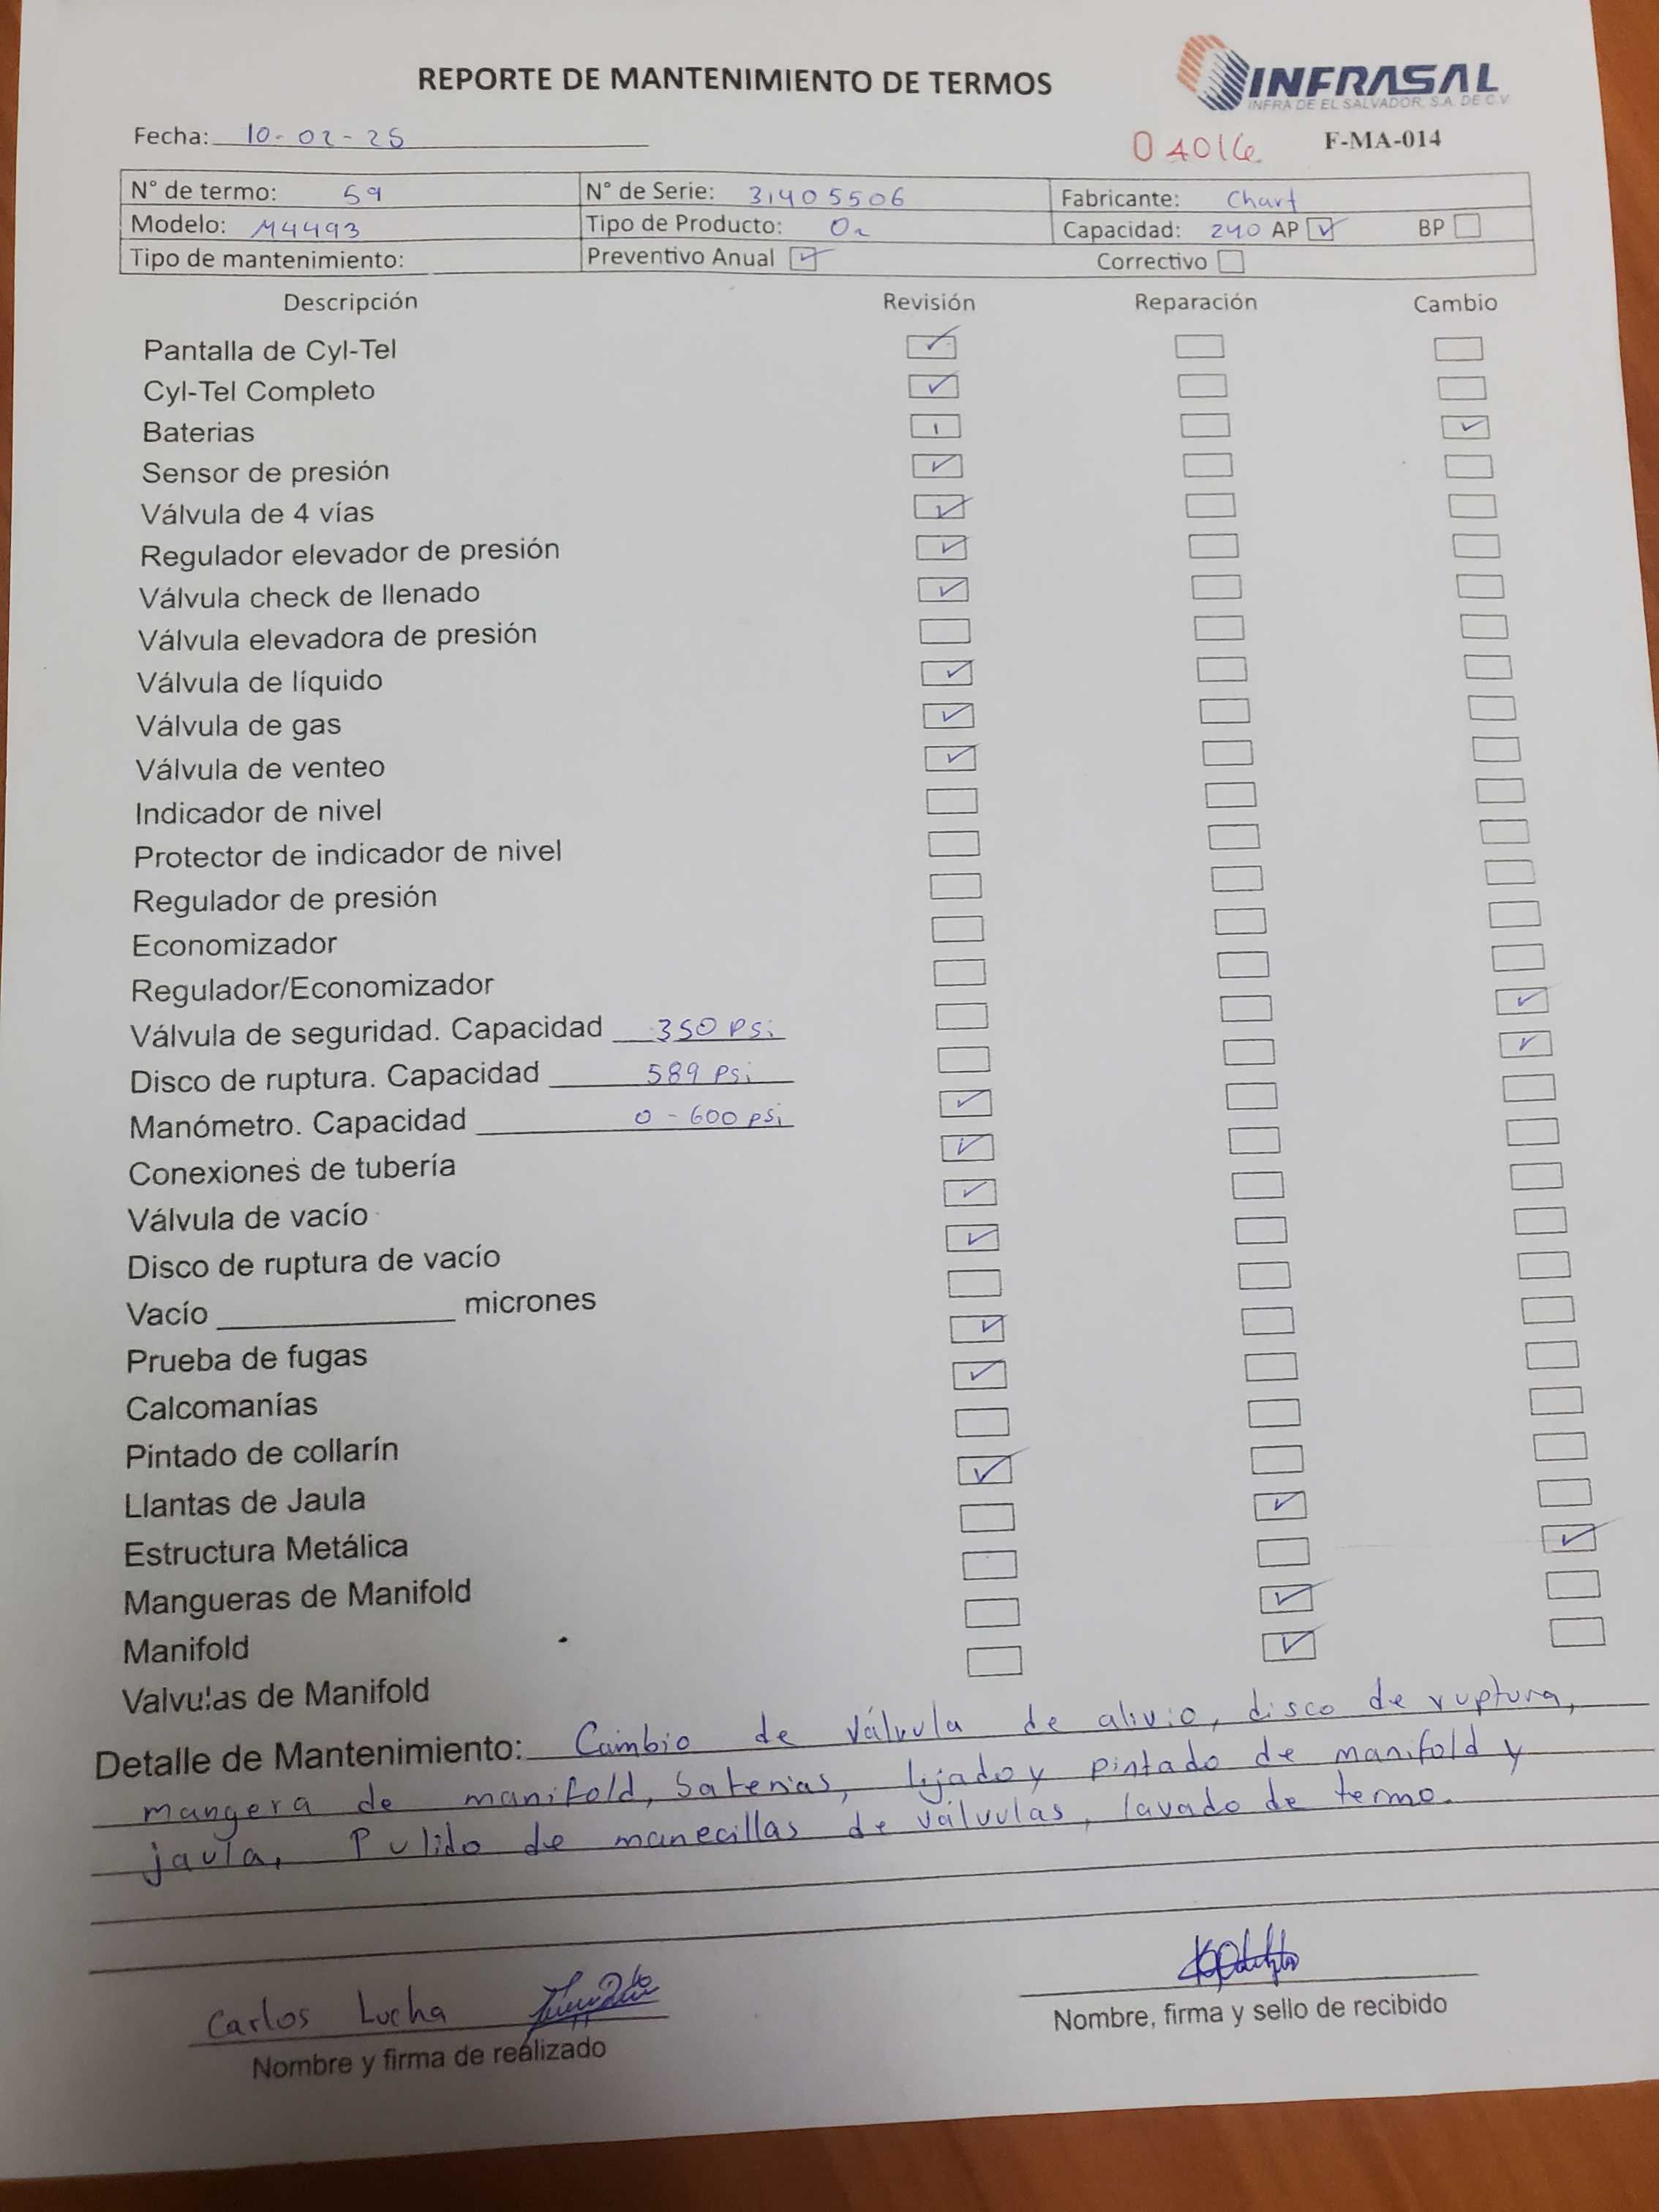 REPORTE DE MANTENIMIENTO DE TERMOS
INFRASAL
INFRA DE EL SALVADOR, S.A. DE C.V
Fecha: 10-02-25
04016 F-MA-014
N° de termo: 59 N° de Serie: 31405506 Fabricante: Chart
Modelo: M4493 Tipo de Producto: O2 Capacidad: 240 AP ☑ BP ☐
Tipo de mantenimiento: Preventivo Anual ☑ Correctivo ☐
Descripción Revisión Reparación Cambio
Pantalla de Cyl-Tel
Cyl-Tel Completo
Baterias
Sensor de presión
Válvula de 4 vías
Regulador elevador de presión
Válvula check de llenado
Válvula elevadora de presión
Válvula de líquido
Válvula de gas
Válvula de venteo
Indicador de nivel
Protector de indicador de nivel
Regulador de presión
Economizador
Regulador/Economizador
Válvula de seguridad. Capacidad 350 PSi
Disco de ruptura. Capacidad 589 PSi
Manómetro. Capacidad 0 - 600 PSi
Conexiones de tubería
Válvula de vacío
Disco de ruptura de vacío
Vacío ____________ micrones
Prueba de fugas
Calcomanías
Pintado de collarín
Llantas de Jaula
Estructura Metálica
Mangueras de Manifold
Manifold
Valvulas de Manifold
Detalle de Mantenimiento: Cambio de válvula de alivio, disco de ruptura,
mangera de manifold, baterias, lijado y pintado de manifold y
jaula, Pulido de manecillas de válvulas, lavado de termo.
Carlos Lucha
Nombre y firma de realizado
Nombre, firma y sello de recibido